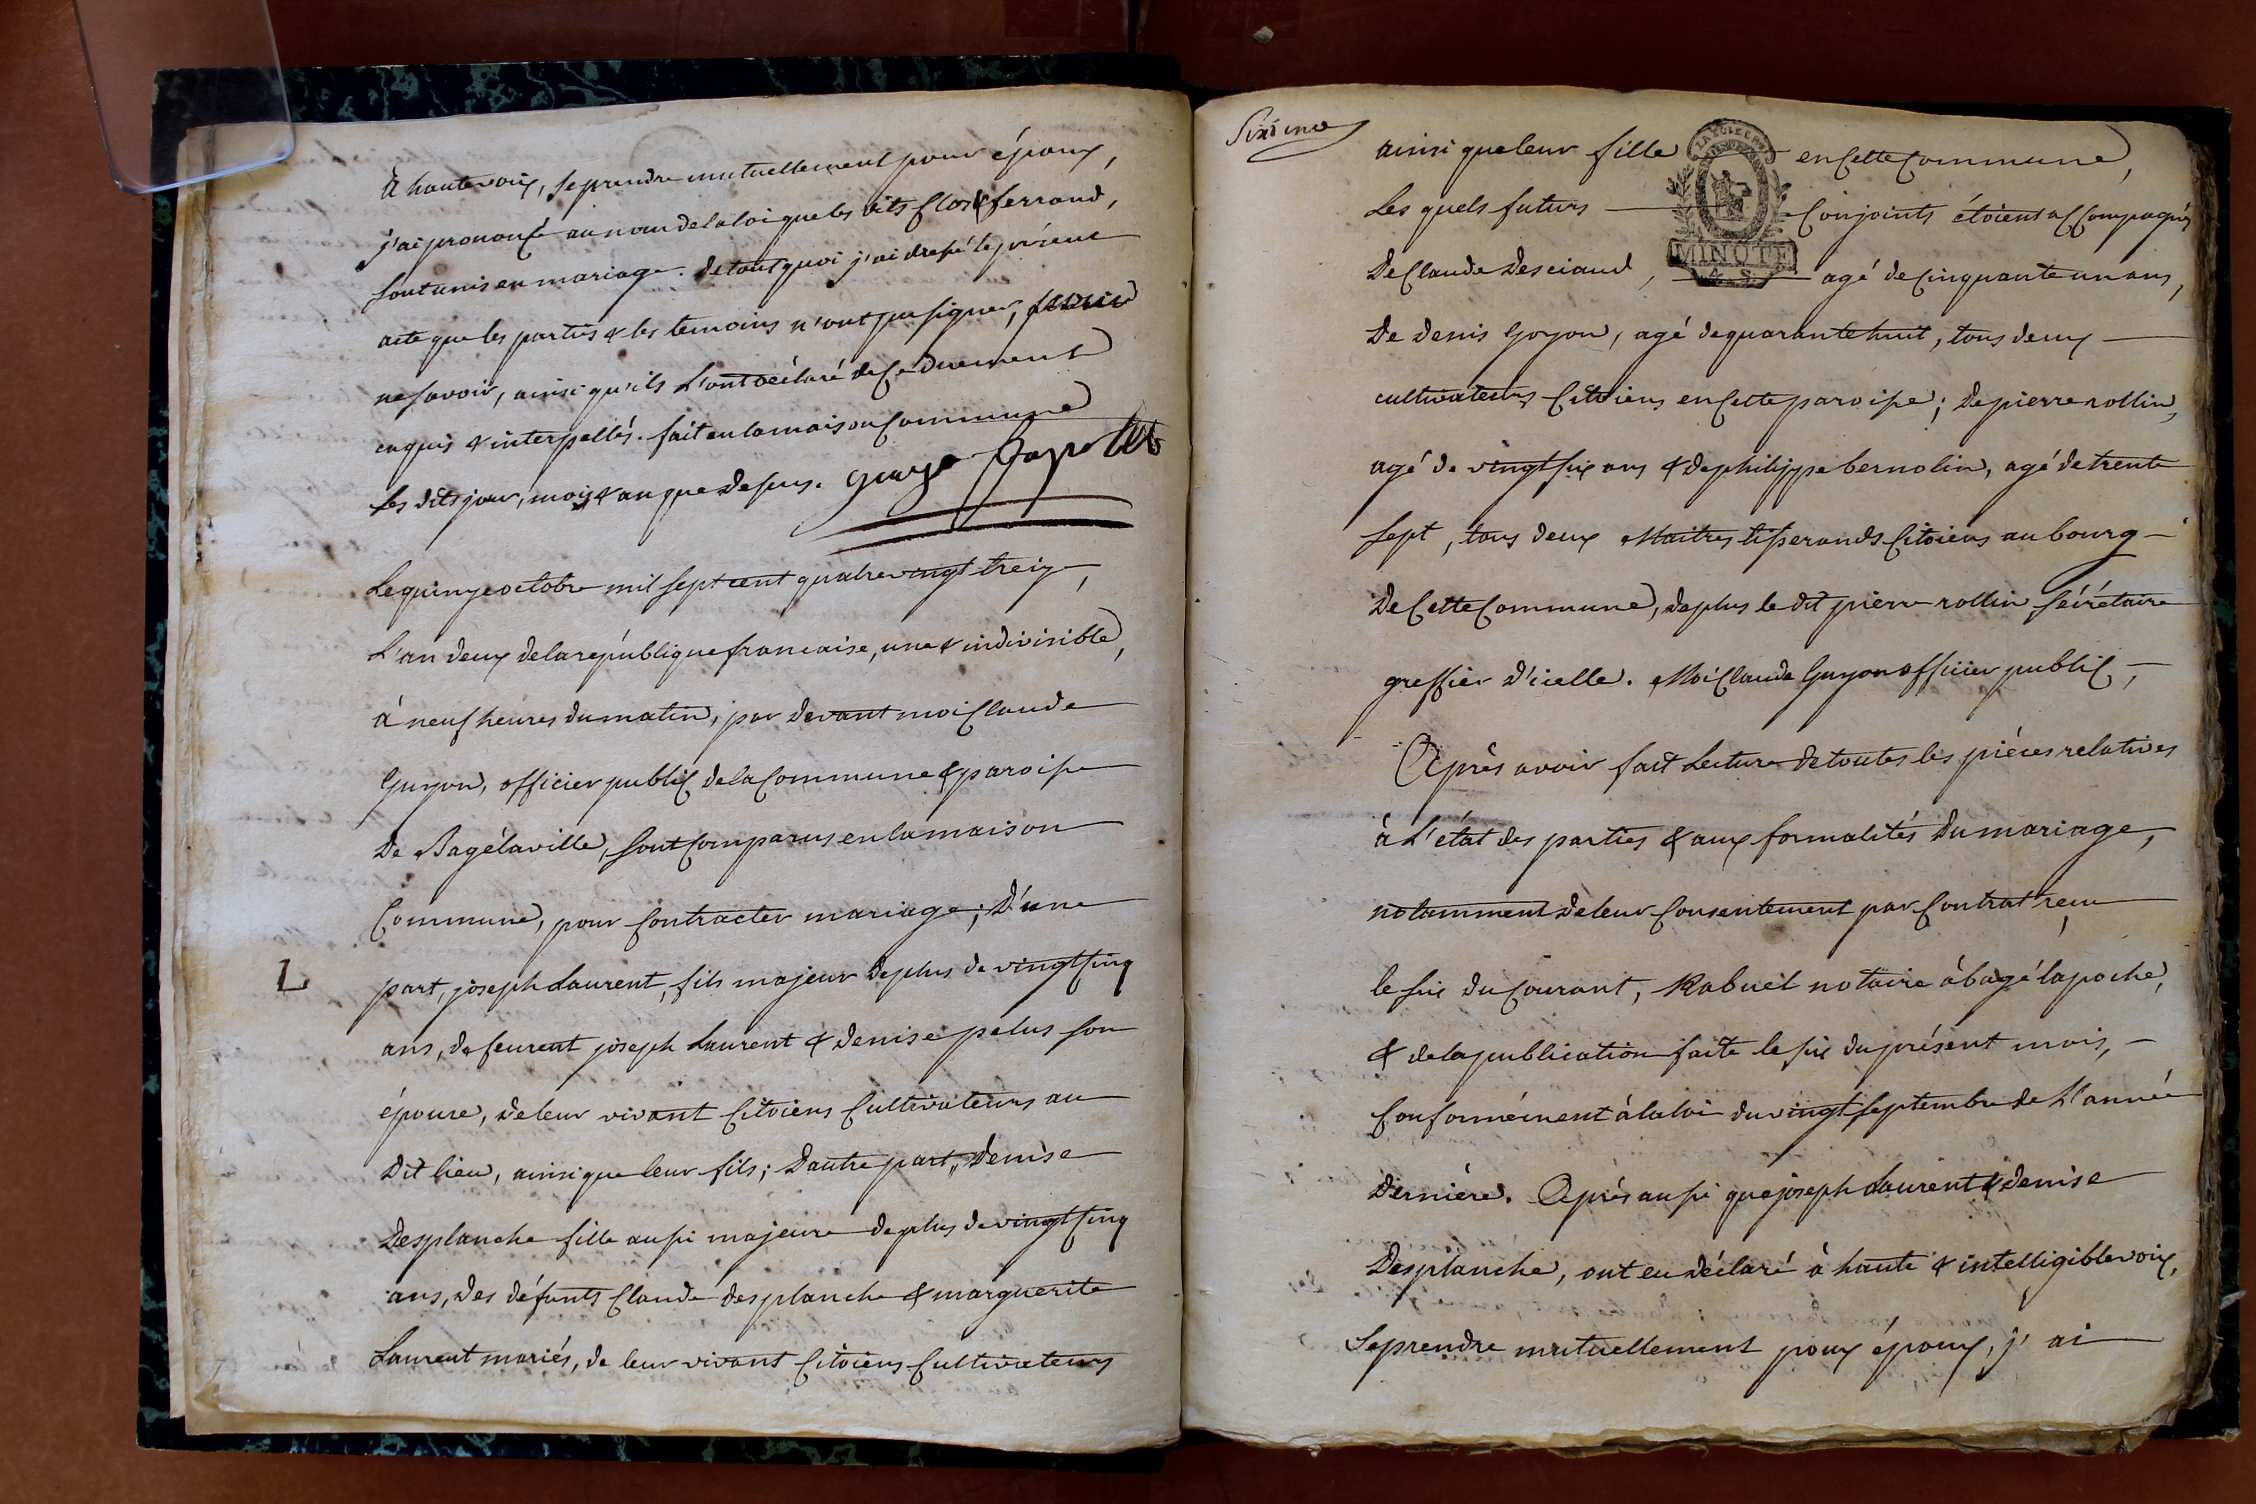 à haute voix, se prendre mutuellement pour époux,
j'ai prononcé au nom de la loi que les dits Clos & ferrand,
sont unis en mariage. de tout quoi j'ai dressé le présent
acte que les parties & les temoins n'ont pu signer,
ne savoir, ainsi qu'ils l'ont déclaré de ce duement
enquis & interpellés. fait en la maison Commune
les dits jour, mois & an que dessus.
Le quinze octobre mil sept cent quatre vingt treize,
L'an deux de la république francaise, une & indivisible,
à neuf heures du matin, par devant moi Claude
Guyon, officier public de la Commune & paroisse
De Bagélaville, sont Comparus en la maison
Commune, pour Contracter mariage; D'une
L
part, joseph Laurent, fils majeur de plus de vingt cinq
ans, de feurent joseph Laurent & denise pelus son
épouse, de leur vivant Citoiens Cultivateurs au
Dit lieu, ainsi que leur fils; Dautre part, Denise
Desplanche fille aussi majeure de plus de vingt cinq
ans, des défunts Claude desplanche & marguerite
Laurent mariés, de leur vivant Citoiens Cultivateurs
Sixieme
ainsi que leur fille en Cette Commune,
Les quels futurs Conjoints étoient accompagnés
MINUTE
4. S.
De Claude Desciaud, agé de Cinquante un ans,
De Denis Goyon, agé de quarante huit, tous deux
cultivateurs Citoiens en Cette paroisse; De pierre rollin,
agé de vingt six ans & de philippe bernolin, agé de trente
sept, tous deux Maitres tisserands Citoiens au bourg
De Cette Commune, de plus le dit pierre rollin sécrétaire
greffier d'icelle. Moi Claude Guyon officier public,
Après avoir fait Lecture de toutes les pièces relatives
à L'état des parties & aux formalités du mariage,
notamment de leur Consentement par Contrat reçu
le six du Courant, Rabuel notaire à bagé la poche,
& de la publication faite le six du présent mois,
Conformément à la loi du vingt septembre de L'année
Dernière. Après aussi que joseph Laurent & denise
Desplanche, ont eu déclaré à haute & intelligible voix,
se prendre mutuellement pour époux, j'ai